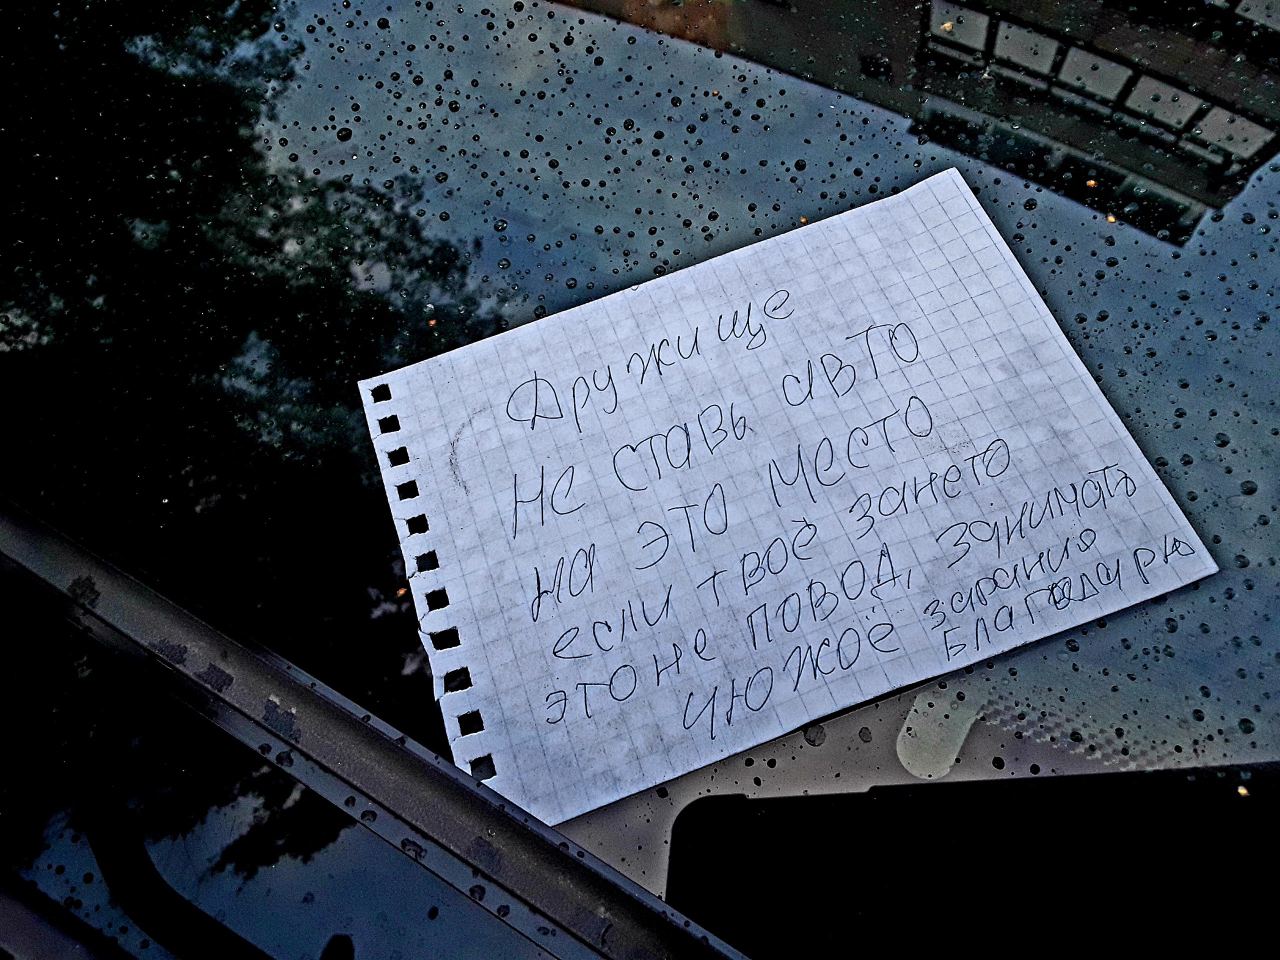 Дружище
не ставь авто
на это место
если твоё зането
это не повод, занимать
чюжоё зарания
Благодарю